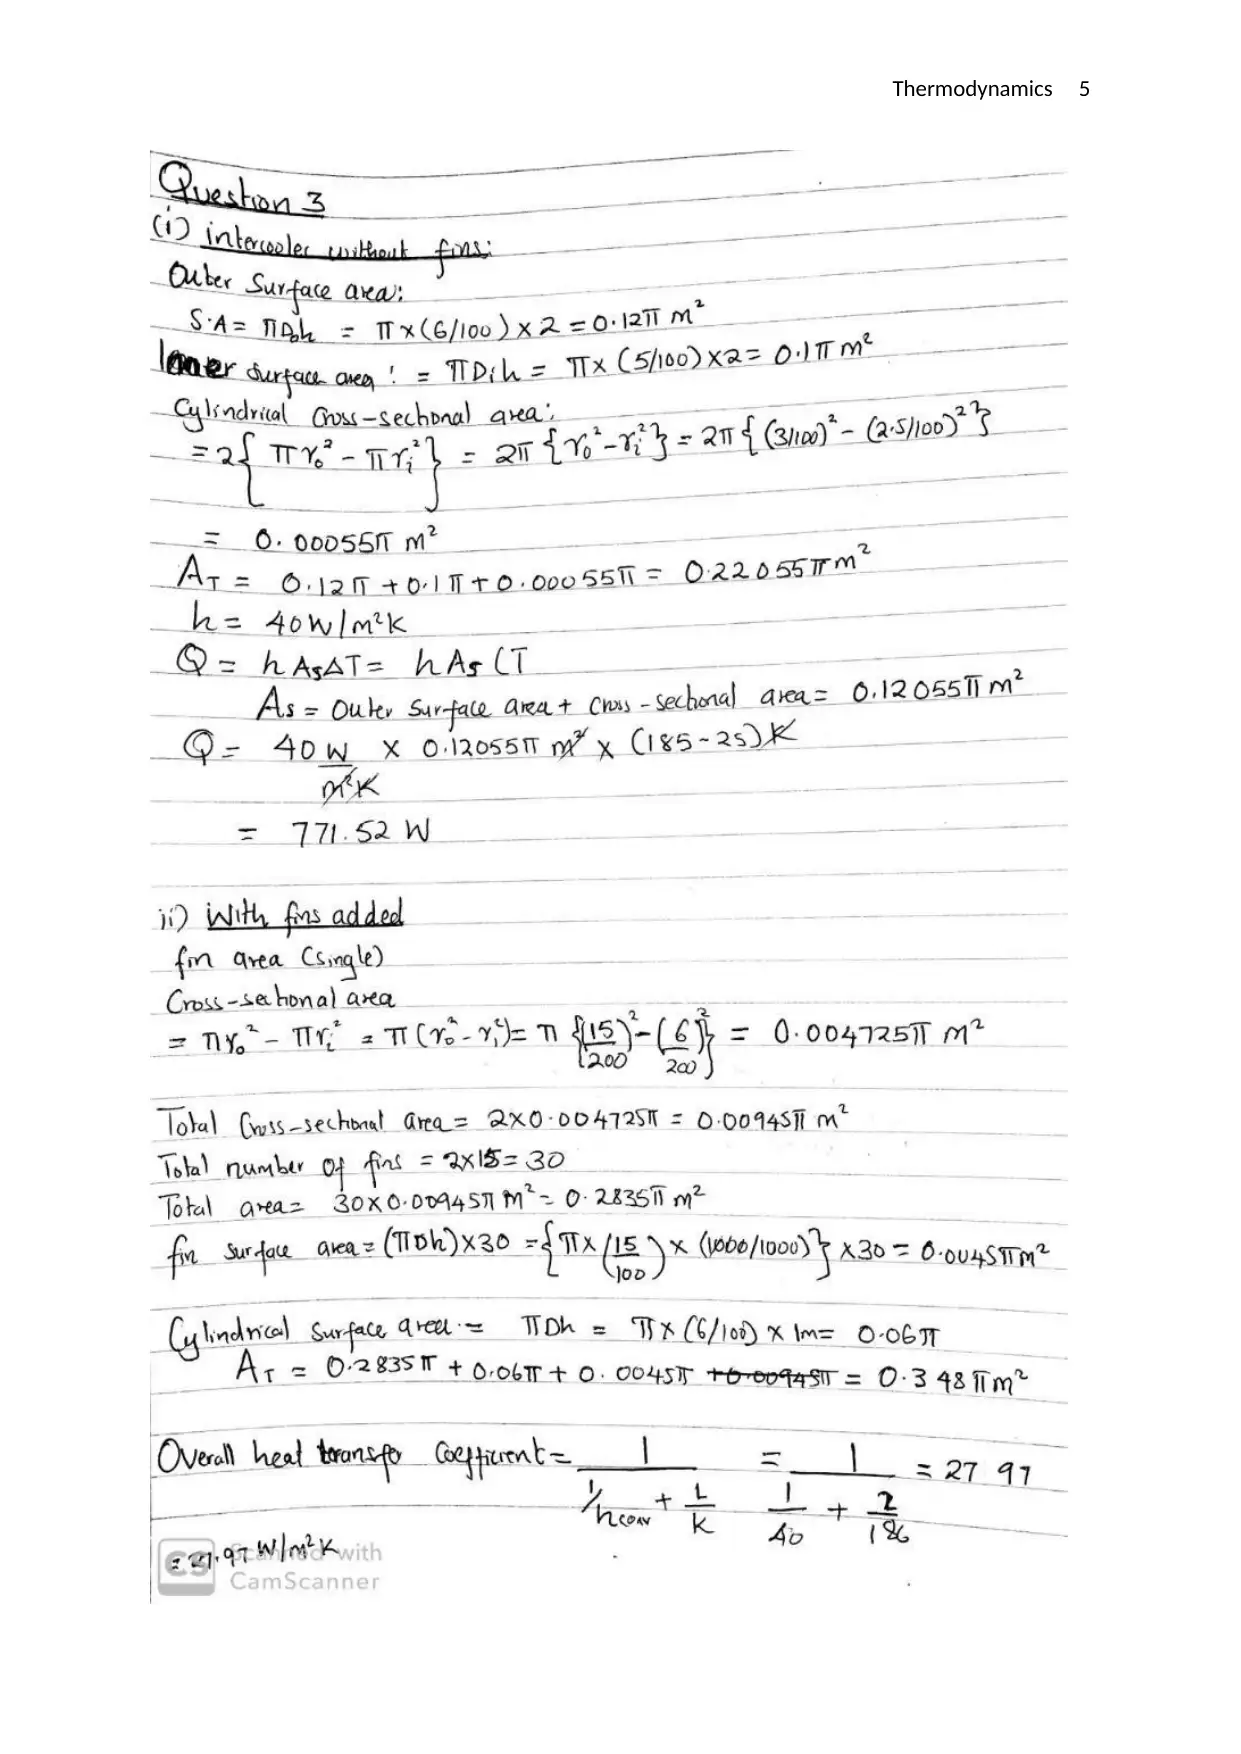 Thermodynamics 5
Question 3
(i) intercooler without fins:
Outer Surface area:
S.A = πD₀h = π x (6/100) x 2 = 0.12π m²
Inner surface area: = πDᵢh = πx (5/100) x2 = 0.1π m²
Cylindrical Cross-sectional area:
= 2{πr₀² - πrᵢ²} = 2π{r₀² - rᵢ²} = 2π{(3/100)² - (2.5/100)²}
= 0.00055π m²
A_T = 0.12π + 0.1π + 0.00055π = 0.22055π m²
h = 40W/m²K
Q = hAsΔT = hAs (T
As = Outer Surface area + Cross-sectional area = 0.12055π m²
Q = 40 W/m²K x 0.12055π m² x (185-25)K
= 771.52 W
ii) With fins added
fin area (single)
Cross-sectional area
= πr₀² - πrᵢ² = π(r₀² - rᵢ²) = π{(15/200)² - (6/200)²} = 0.004725π m²
Total Cross-sectional area = 2x0.004725π = 0.00945π m²
Total number of fins = 2x15 = 30
Total area = 30x0.00945π m² = 0.2835π m²
fin surface area = (πDh)x30 = {πx(15/100)x( /1000)}x30 = 0.0045πm²
Cylindrical Surface area = πDh = πx(6/100) x 1m = 0.06π
A_T = 0.2835π + 0.06π + 0.0045π +0.00945π = 0.348πm²
Overall heat transfer Coefficient = 1/(1/hconv + L/K) = 1/(1/40 + 2/186) = 27 97
= 27.97 W/m²K
CS Scanned with
CamScanner